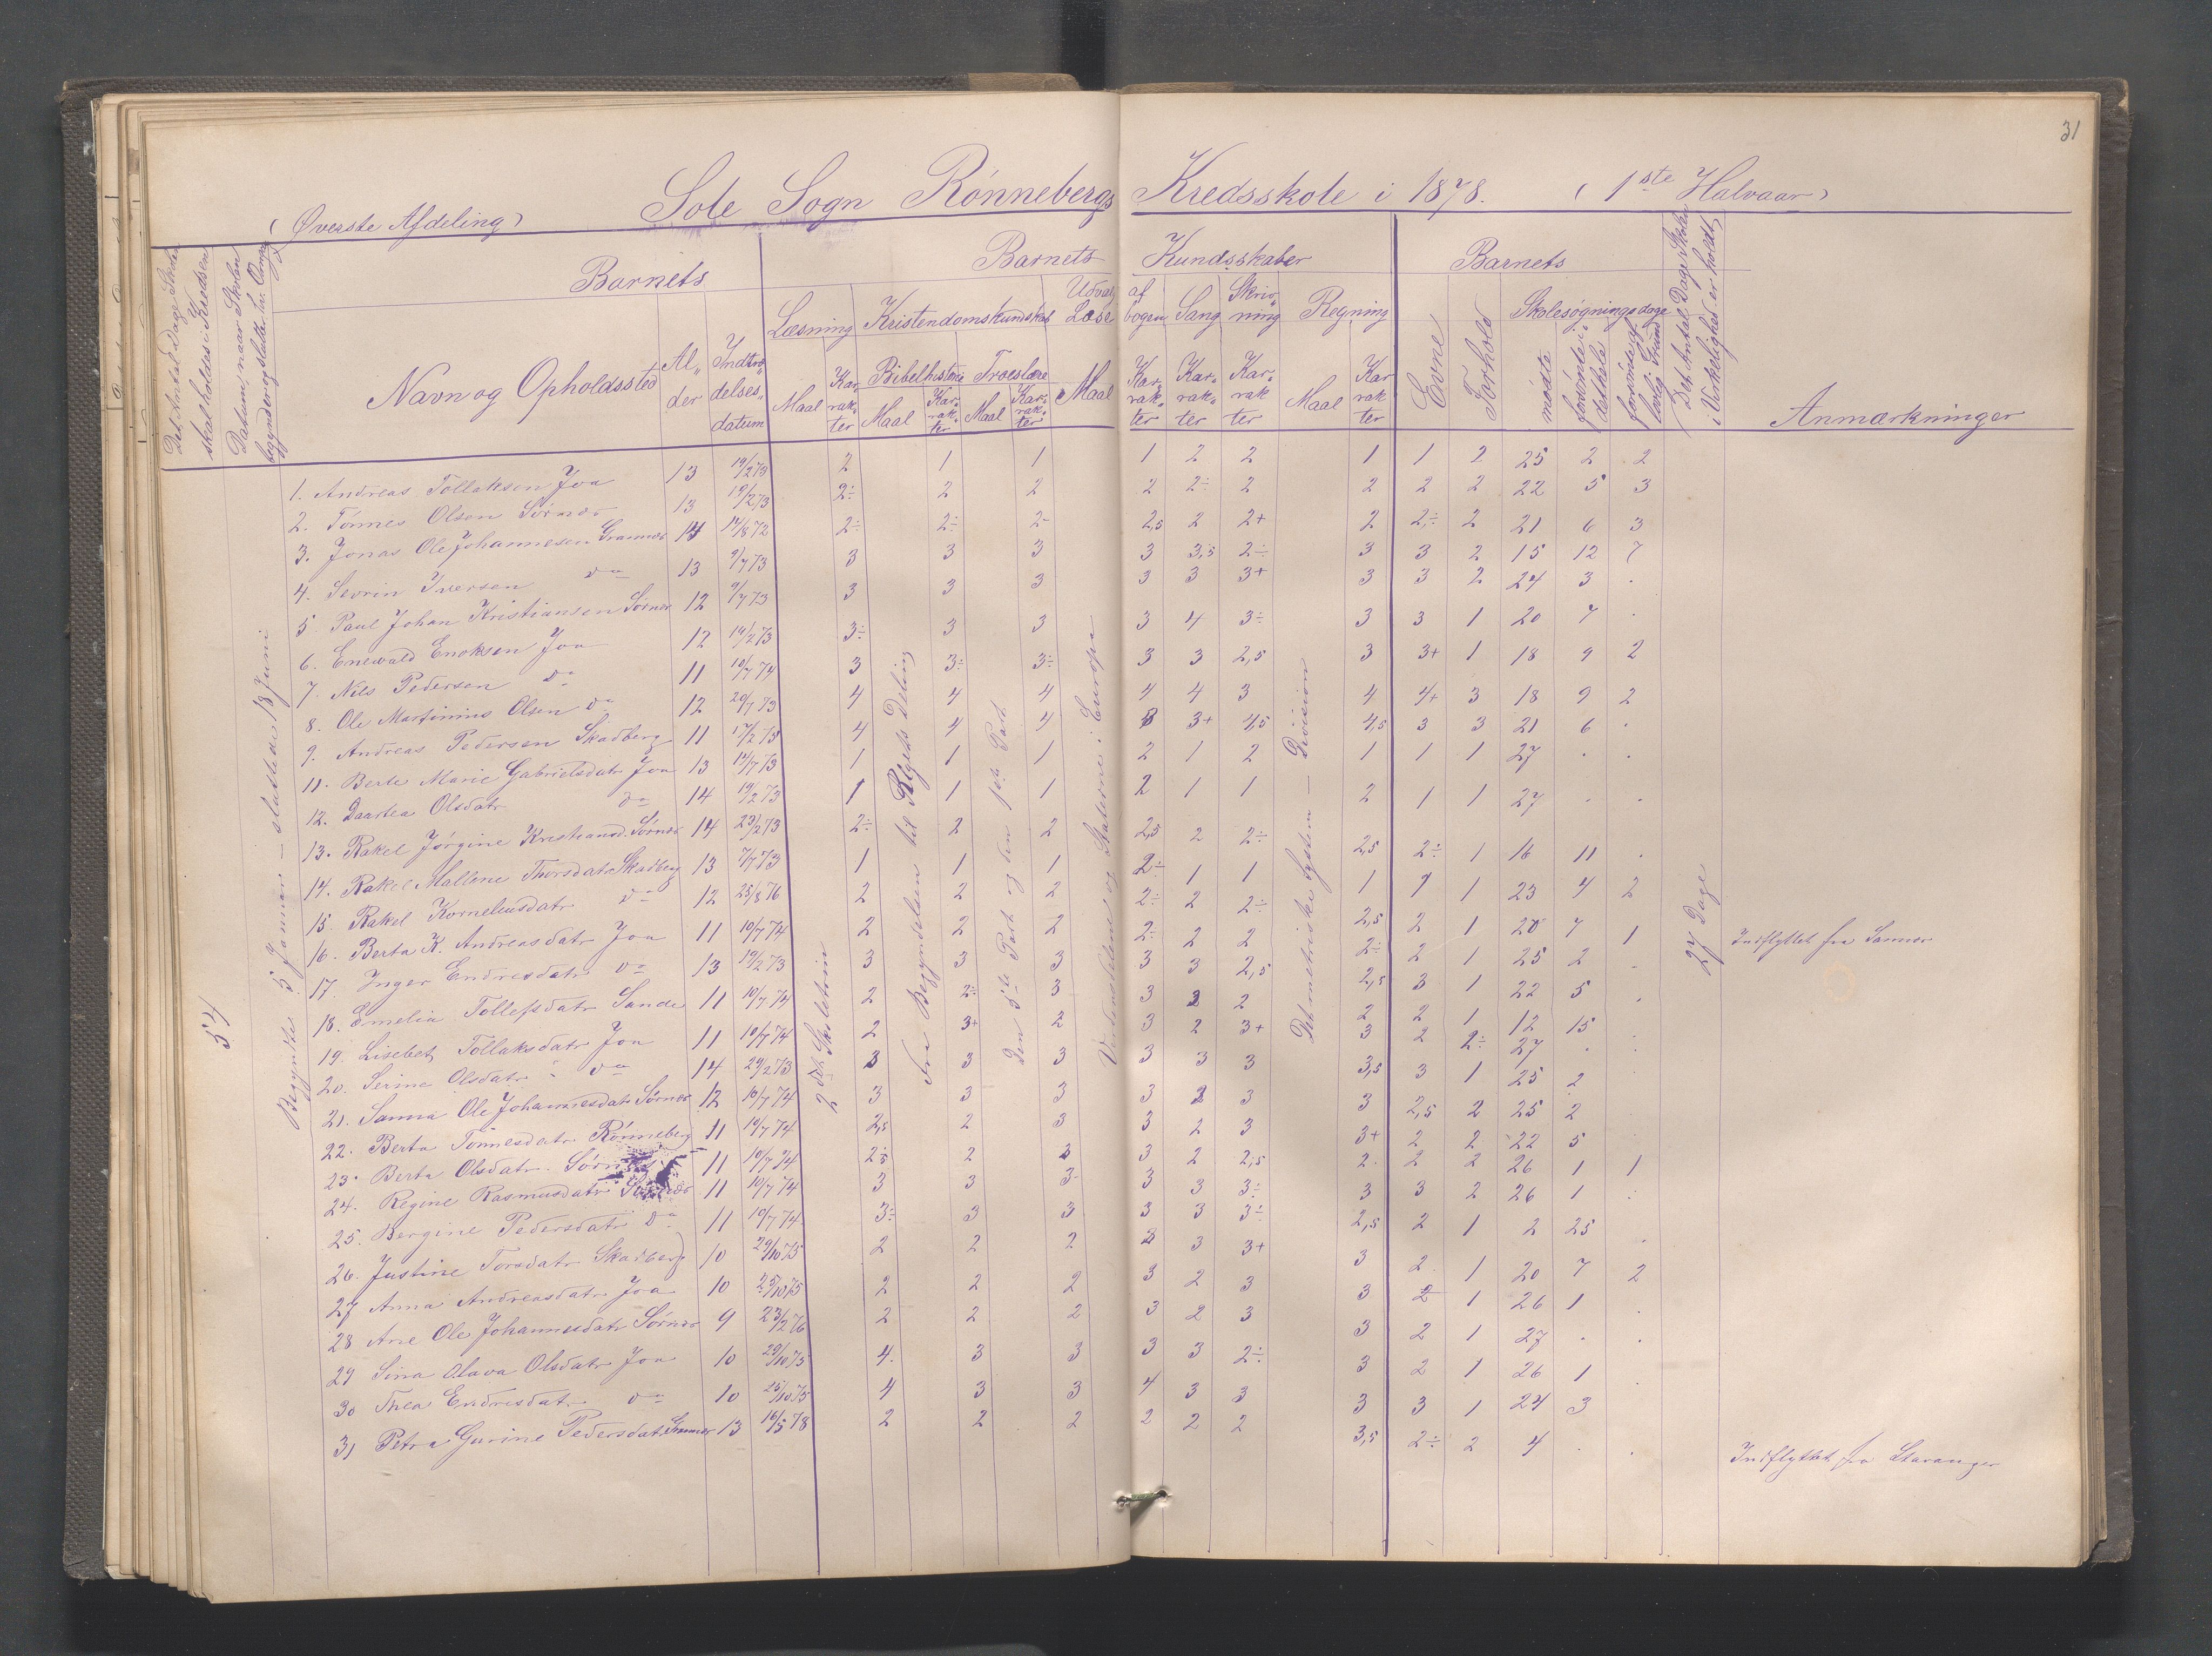 31
Sole Sogn Rönnebergs Kredsskole i 1878. (1ste Halvaar)
(Øverste Afdeling)
Det Antal Dage Skolen skal holdes i Kredsen
Datum, naar Skolen begynder og slutter
Barnets
Barnets Kundsskaber
Barnets
Det Antal Dage Skolen i Virkelighed er holdt
Navn og Opholdssted
Al„der
Indtræ„delses„datum
Læsning Kristendomskundskab Udvalg af Læsebogen Sang Skriv„ning Regning
Evne Forhold Skolesøgningsdage
Bibelhistorie Troeslære
Maal Karrakter Maal Karrakter Maal Karrakter Maal Karrakter Karrakter Karrakter Maal Karrakter
mødte forsømte i det hele forsømte af lovlig Grund
Anmærkninger
54
Begyndte 5 Januar – sluttede 13 Juni
2det Skoletrin
Fra Begyndelsen til Rigets Deling
Den 5te Part og den 1ste Part
Verdensdelene og Staterne i Europa
Det metriske System – Division
27 Dage
1. Andreas Tollaksen Joa 13 19/2 73 2 1 1 1 2 2 1 1 2 25 2 2
2. Tönnes Olsen Sörnæs 13 19/2 73 2÷ 2 2 2 2÷ 2 2 2 2 22 5 3
3. Jonas Ole Johannesen Grannæs 14 14/8 72 2÷ 2÷ 2- 2,5 2 2+ 2 2÷ 2 21 6 3
4. Sevrin Iversen do 13 9/7 73 3 3 3 3 3,5 2÷ 3 3 2 15 12 7
5. Paul Johan Kristiansen Sörnæs 12 9/7 73 3 3 3 3 3 3+ 3 3 2 24 3 .
6. Enewald Enoksen Joa 12 19/2 73 3÷ 3 3 3 4 3÷ 3 3 1 20 7 .
7. Nils Pedersen do 11 10/7 74 3 3÷ 3÷ 3 3 2,5 3 3+ 1 18 9 2
8. Ole Martinius Olsen do 12 20/7 73 4 4 4 4 4 3 4 4+ 3 18 9 2
9. Andreas Pedersen Skadberg 11 17/2 75 4 4 4 3 3+ 4,5 4,5 3 3 21 6 .
11. Berte Marie Gabrielsdatr Joa 13 14/7 73 1 1 1 2 1 2 1 1 1 27 . .
12. Daartea Olsdatr do 14 19/2 73 1 1 1 2 1 1 2 1 1 27 . .
13. Rakel Jørgine Kristiansd. Sörnæs 14 23/2 73 2÷ 2 2 2,5 2 2÷ 2,5 2÷ 1 16 11 .
14. Rakel Mallene Thorsdatr Skadberg 13 7/7 73 1 1 1 2÷ 1 1 1 1 1 23 4 2
15. Rakel Korneliusdatr do 12 25/8 76 2 2 2 2÷ 2 2÷ 2,5 2 1 20 7 1 Indflyttet fra
16. Berta K. Andreasdatr Joa 11 10/7 74 2 2 2 2÷ 2 2 2÷ 2 1 25 2 .
17. Inger Endresdatr do 13 19/2 73 3 3 3 3 3 2,5 2,5 3 1 22 5 .
18. Emelia Tollefsdatr Sande 11 10/7 74 2 2÷ 3 3 3 2 2 2 1 12 15 .
19. Lisebet Tollaksdatr Joa 11 10/7 74 2 3+ 2 3 2 3+ 3 2 2÷ 27 . .
20. Serine Olsdatr do 14 29/2 73 3 3 3 3 3 3 3,5 3 1 25 2 .
21. Sanna Ole Johannesdatr Sörnæs 12 10/7 74 3 3 3 3 2 3 3 2,5 2 25 2 .
22. Berta Tönnesdatr Rönneberg 11 10/7 74 2,5 2 3 3 2 3 3+ 2 2 22 5 .
23. Berta Olsdatr Sörnæs 11 10/7 74 2÷ 2 3 3 2 2,5 2 2 2 26 1 1
24. Regine Rasmusdatr 11 10/7 74 3 3 3- 3 3 3÷ 3 3 2 26 1 .
25. Bergine Pedersdatr do 11 10/7 74 3÷ 3 3 3 3 3÷ 2,5 2 1 2 25 .
26. Justine Torsdatr Skadberg 10 29/10 75 2 2 2 3 3 3+ 3 2 1 20 7 2
27 Anna Andreasdatr Joa 10 29/10 75 2 2 2 3 2 3 3 2 1 26 1 .
28 Ane Ole Johannesdatr Sörnæs 9 23/2 76 2 2 2 3 2 3 3 2 1 27 . .
29 Sina Olava Olsdatr Joa 10 29/10 75 4. 3 3 3 3 2÷ 3 2 1 26 1 .
30 Thea Endresdatr do 10 25/10 75 4 3 3 4 3 3 3 3 1 24 3
31 Petra Gurine Pedersdatr 13 16/5 78 2 2 2 2 2 2 3,5 2÷ 2 4 . . Indflyttet fra Stavanger